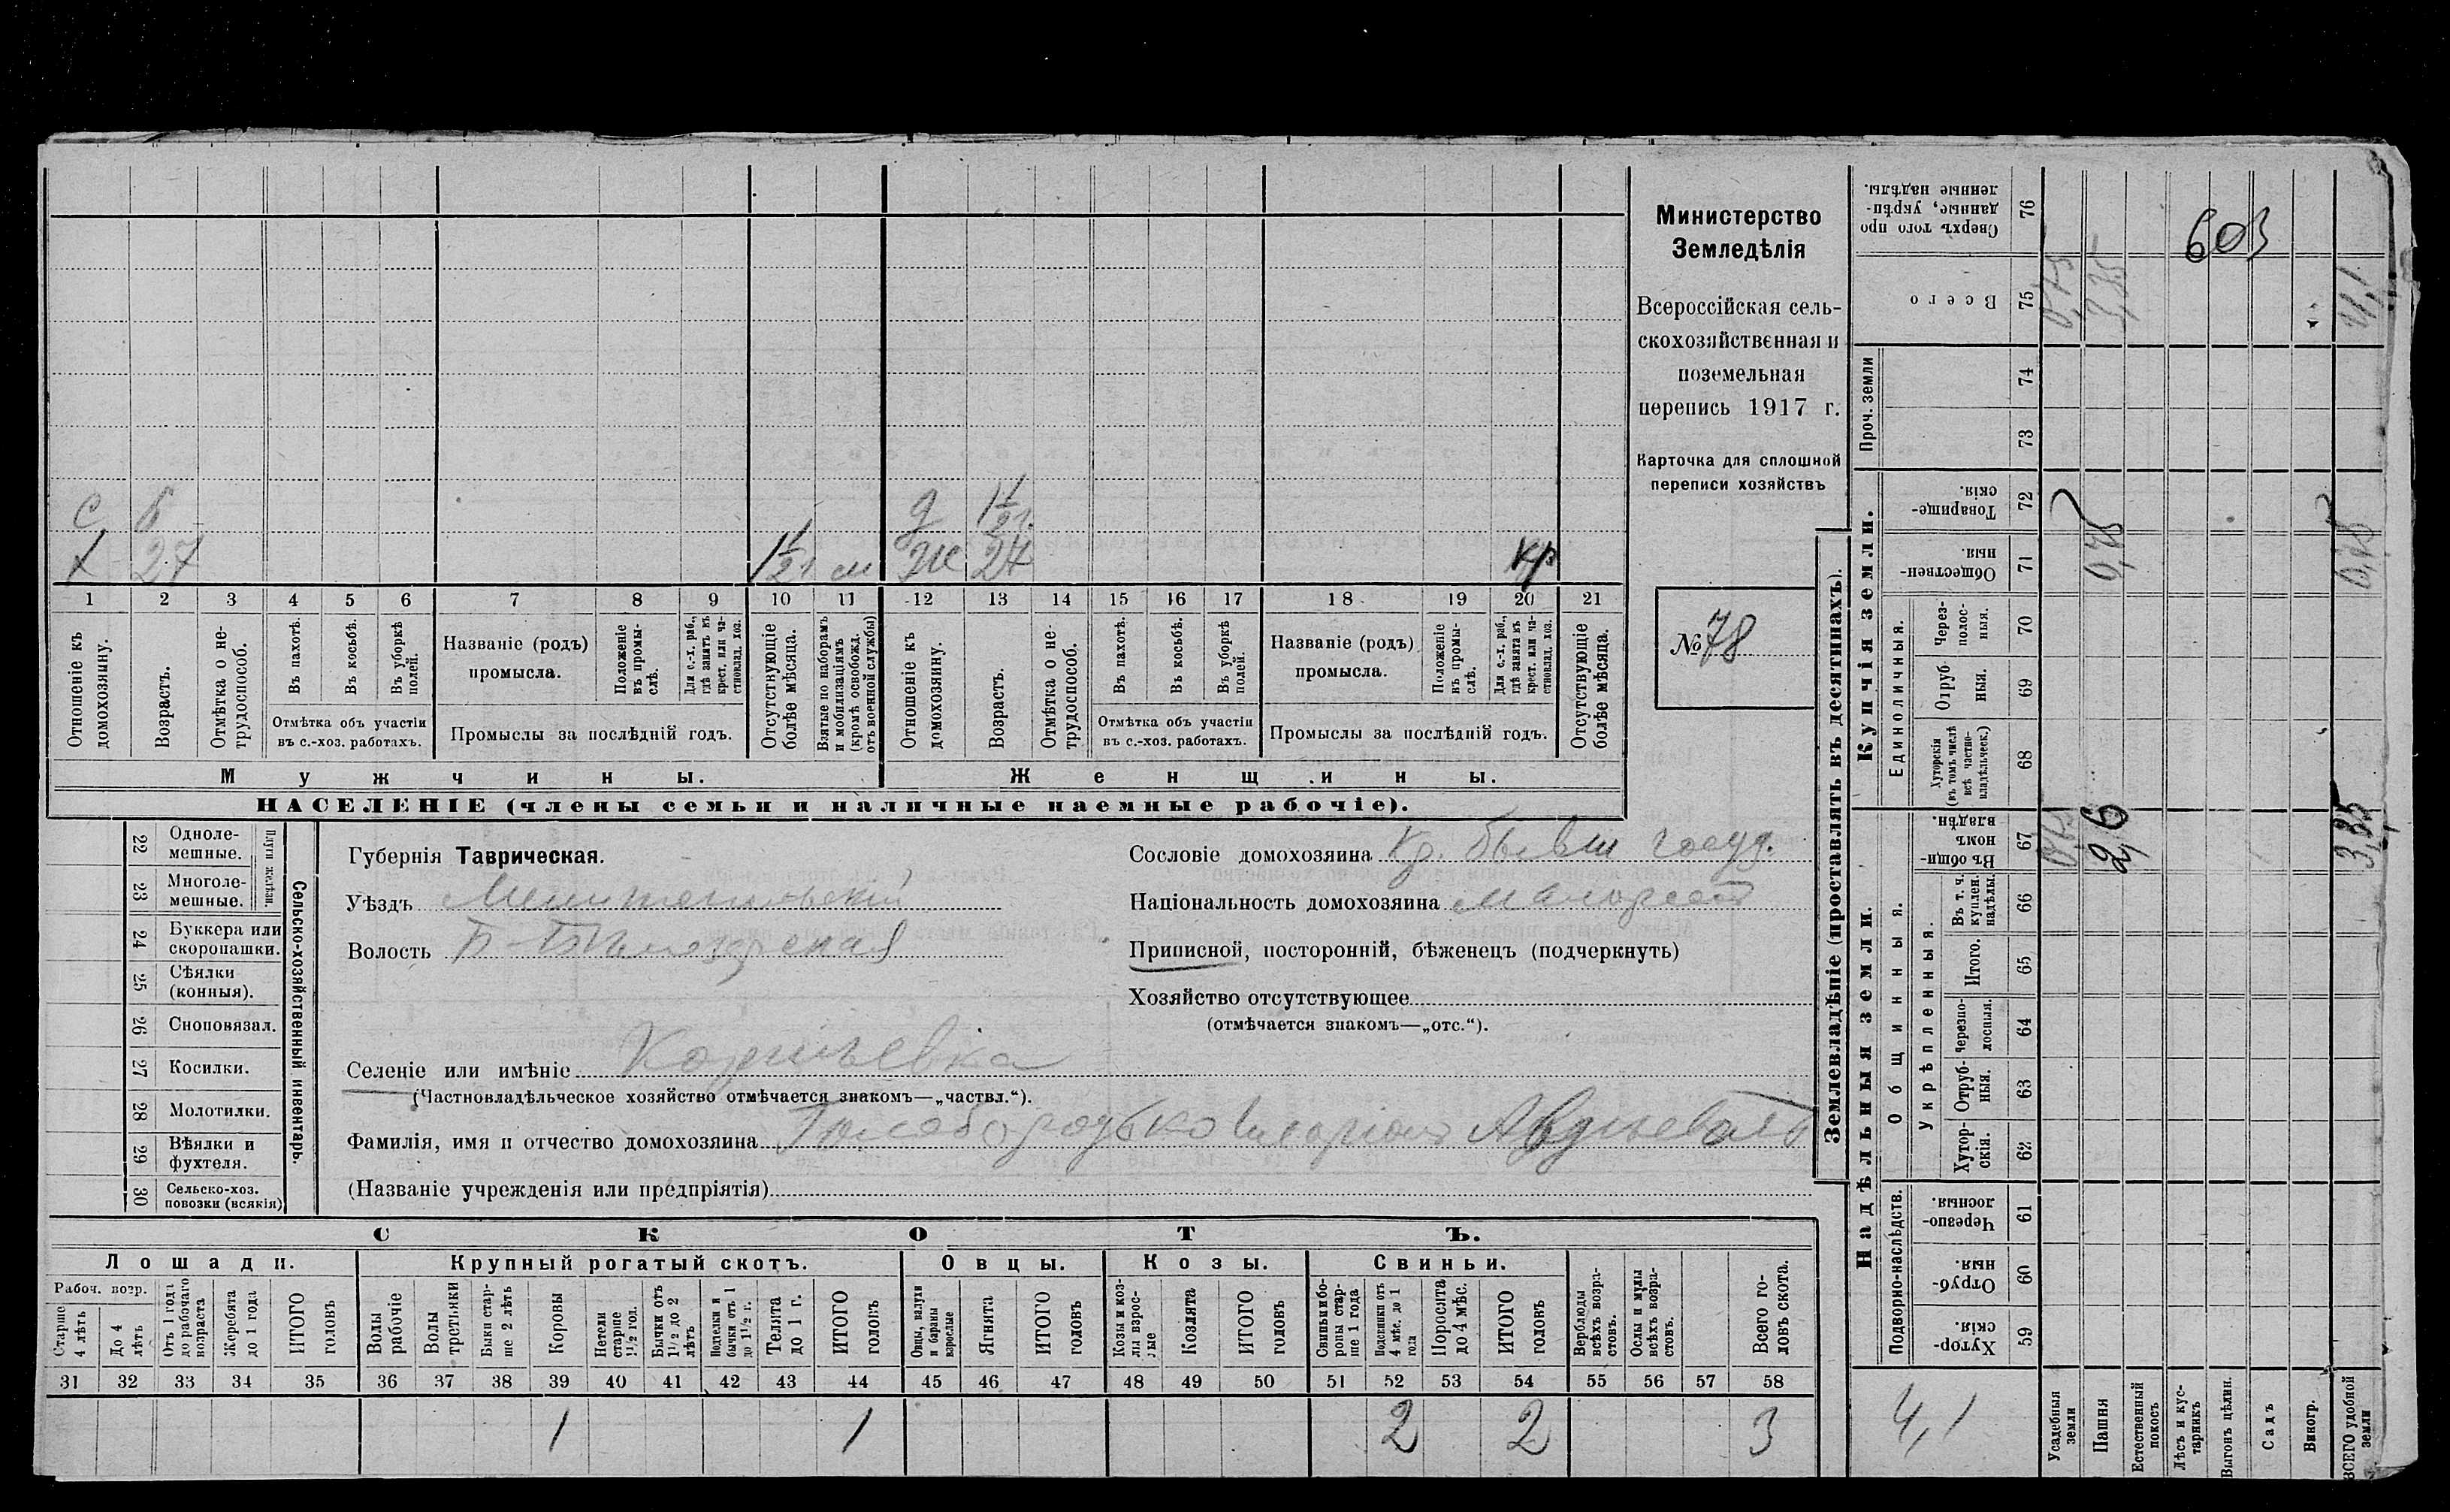 Министерство
Земледѣлія
Всероссійская сель-
скохозяйственная и
поземельная
перепись 1917 г.
Карточка для сплошной
переписи хозяйствъ
№ 78
с 6 д 1½
х 27 1½ м ж 27 кр
1 2 3 4 5 6 7 8 9 10 11 12 13 14 15 16 17 18 19 20 21
Отношеніе къ домохозяину.
Возрастъ.
Отмѣтка о не-трудоспособ.
Въ пахотѣ.
Въ косьбѣ.
Въ уборкѣ полей.
Отмѣтка объ участіи
въ с.-хоз. работахъ.
Названіе (родъ)
промысла.
Положеніе въ промы-слѣ.
Для с.-х. раб., гдѣ занятъ въ крест. или ча-стновлад. хоз.
Промыслы за послѣдній годъ.
Отсутствующіе болѣе мѣсяца.
Взятые по наборамъ и мобилизаціямъ (кромѣ освобожд. отъ военной службы)
Отношеніе къ домохозяину.
Возрастъ.
Отмѣтка о не-трудоспособ.
Въ пахотѣ.
Въ косьбѣ.
Въ уборкѣ полей.
Отмѣтка объ участіи
въ с.-хоз. работахъ.
Названіе (родъ)
промысла.
Положеніе въ промы-слѣ.
Для с.-х. раб., гдѣ занята въ крест. или ча-стновлад. хоз.
Промыслы за послѣдній годъ.
Отсутствующіе болѣе мѣсяца.
Мужчины. Женщины.
НАСЕЛЕНІЕ (члены семьи и наличные наемные рабочіе).
22 Одноле-мешные.
23 Многоле-мешные.
Плуги желѣзн.
24 Буккера или скоропашки.
25 Сѣялки (конныя).
26 Сноповязал.
27 Косилки.
28 Молотилки.
29 Вѣялки и фухтеля.
30 Сельско-хоз. повозки (всякія)
Сельско-хозяйственный инвентарь.
Губернія Таврическая.
Уѣздъ Мелитопольскій
Волость Б-Бѣлозерская
Сословіе домохозяина Кр. бывш госуд.
Національность домохозяина малоросс
Приписной, посторонній, бѣженецъ (подчеркнуть)
Хозяйство отсутствующее
(отмѣчается знакомъ—„отс.“).
Селеніе или имѣніе
(Частновладѣльческое хозяйство отмѣчается знакомъ—„частвл.“).
Фамилія, имя и отчество домохозяина Голобородько Иларіонъ Авдѣевъ
(Названіе учрежденія или предпріятія)
СКОТЪ.
Лошади. Крупный рогатый скотъ. Овцы. Козы. Свиньи.
Рабоч. возр.
Старше 4 лѣтъ
До 4 лѣтъ
Отъ 1 года до рабочаго возраста
Жеребята до 1 года
ИТОГО головъ
Волы рабочіе
Волы третьяки
Быки стар-ше 2 лѣтъ
Коровы
Нетели старше 1½ год.
Бычки отъ 1½ до 2 лѣтъ
Подтелки и бычки отъ 1 до 1½ г.
Телята до 1 г.
ИТОГО головъ
Овцы, валухи и бараны взрослые
Ягнята
ИТОГО головъ
Козы и коз-лы взрос-лые
Козлята
ИТОГО головъ
Свиньи и бо-ровы стар-ше 1 года
Подсвинки отъ 4 мѣс. до 1 года
Поросята до 4 мѣс.
ИТОГО головъ
Верблюды всѣхъ возра-стовъ.
Ослы и мулы всѣхъ возра-стовъ.
Всего го-ловъ скота.
31 32 33 34 35 36 37 38 39 40 41 42 43 44 45 46 47 48 49 50 51 52 53 54 55 56 57 58
1 1 2 2 3
Землевладѣніе (проставлять въ десятинахъ).
Надѣльныя земли. Купчія земли. Проч. земли
Подворно-наслѣдств.
Общинныя.
Укрѣпленныя.
Единоличныя.
Хутор-скія. 59
Отруб-ныя. 60
Черезпо-лосныя. 61
Хутор-скія. 62
Отруб-ныя. 63
Черезпо-лосныя. 64
Итого. 65
Въ т. ч. куплен. надѣлы. 66
Въ общи-номъ владѣн. 67
Хуторскія (въ томъ числѣ всѣ частно-владѣльческ.) 68
Отруб-ныя. 69
Через-полос-ныя. 70
Обществен-ныя. 71
Товарище-скія. 72
73
74
Всего 75
Сверхъ того про-данные, укрѣп-ленные надѣлы. 76
603
0,75 3,35 4,1
0,75 0,75
0,75 2,6 3,35
4,1
Усадебныя земли
Пашня
Естественный покосъ
Лѣсъ и кус-тарникъ
Выгонъ цѣлин.
Садъ
Виногр.
ВСЕГО удобной земли